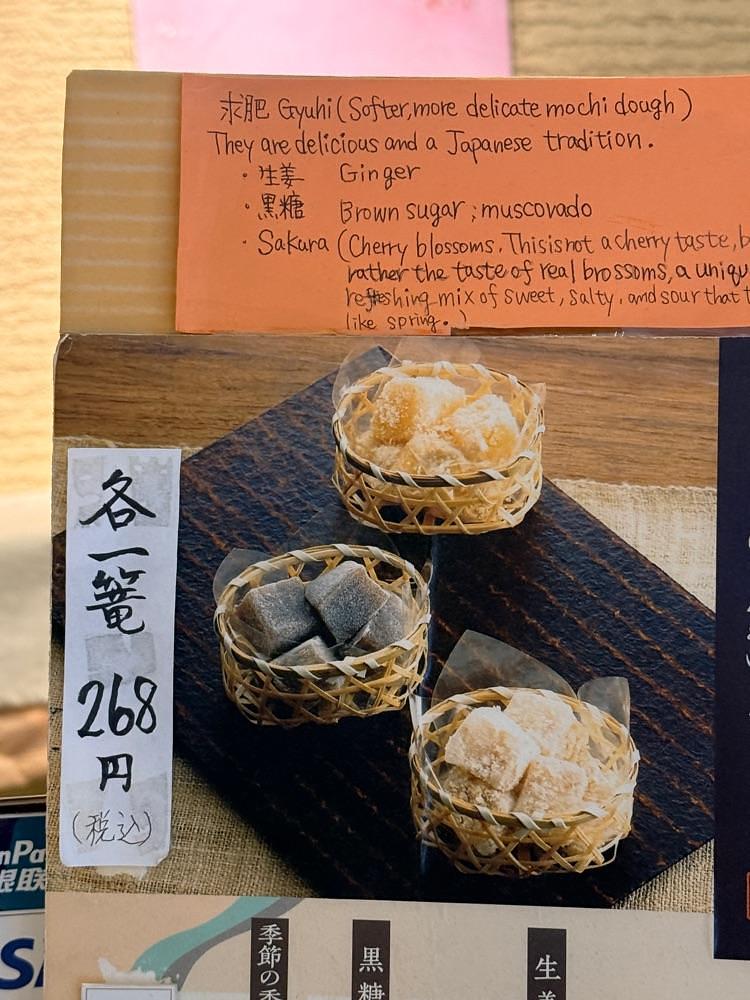 求肥 Gyuhi (Softer, more delicate mochi dough)
They are delicious and a Japanese tradition.
・生姜 Ginger
・黒糖 Brown sugar ; muscovado
・Sakura (Cherry blossoms. This is not a cherry taste,
rather the taste of real brossoms, a
refreshing mix of sweet, salty, and sour that
like spring.)
各一篭
268
円
(税込)
季節の
黒糖
生姜